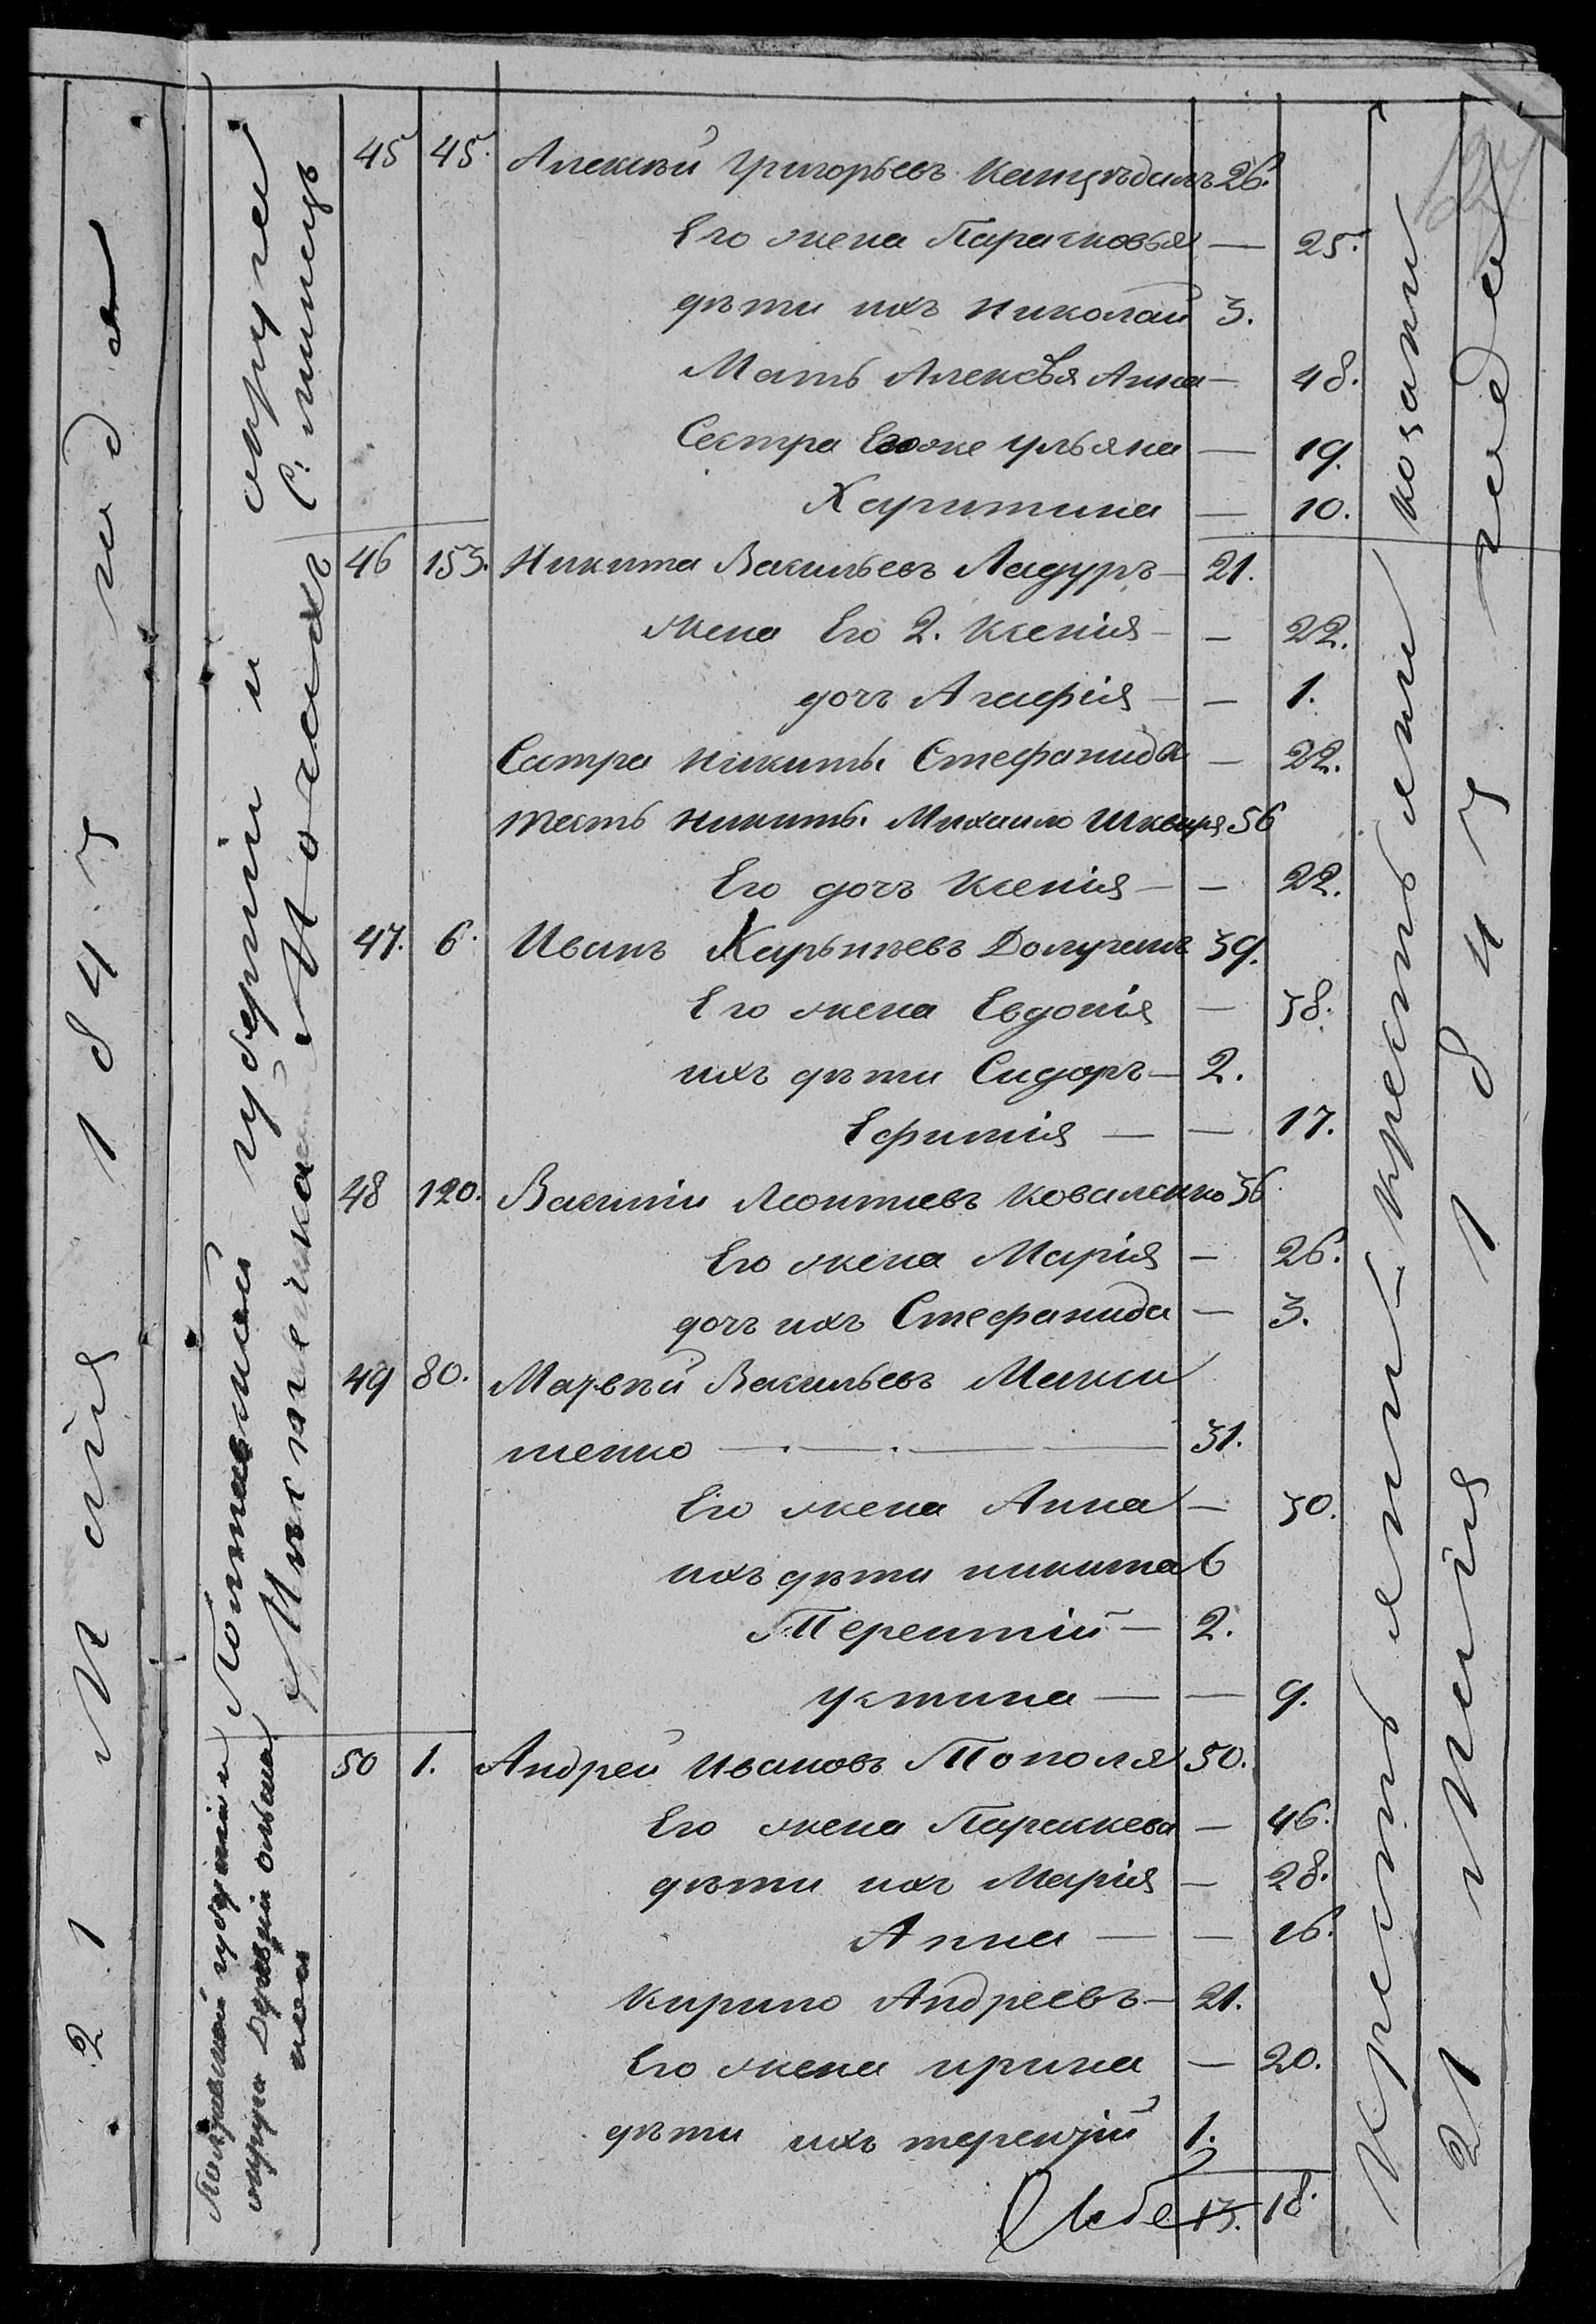 21 Мая 1847 года
Полтавской губерніи и округи
С. Липецъ
Миклешка Могилахъ
Полтавской губерніи
округа Деревни
45 45. Алексѣй Григорьевъ 26.
Его жена Парасковья — 25.
дѣти ихъ Николай 3.
Мать Алексѣя Анна — 48.
Сестра Егоже Ульяна — 19.
Харитина — 10.
46 153. Никита Васильевъ Ладуръ — 21.
жена Его 2. Ксенія — — 22.
дочъ Агафія — — 1.
Сестра Никиты Стефанида — 22.
тесть Никиты Михаило Шквыря 56
Его дочъ Ксенія — — 22.
47. 6. Иванъ Карьпѣевъ 39.
Его жена Евдокія — 38.
ихъ дѣти Сидоръ — 2.
Ефимія — — 17.
48 120. Василій Леонтиевъ Коваленко 36
Его жена Марія — 26.
дочъ ихъ Стефанида — 3.
49 80. Матвѣй Васильевъ Макси
менко — 31.
Его жена Анна — 30.
ихъ дѣти никита 6
Терентій — 2.
устина — — 9.
50 1. Андрей Ивановъ Тополя 50.
Его жена Параскева — 46.
дѣти ихъ Марія — 28.
Анна — — 16.
Кирило Андреевъ — 21.
Его жена ирина — 20.
дѣти ихъ терентій 1.
13. 18.
Крестьянинъ крестьяни козаки
21 Мая 1847 года